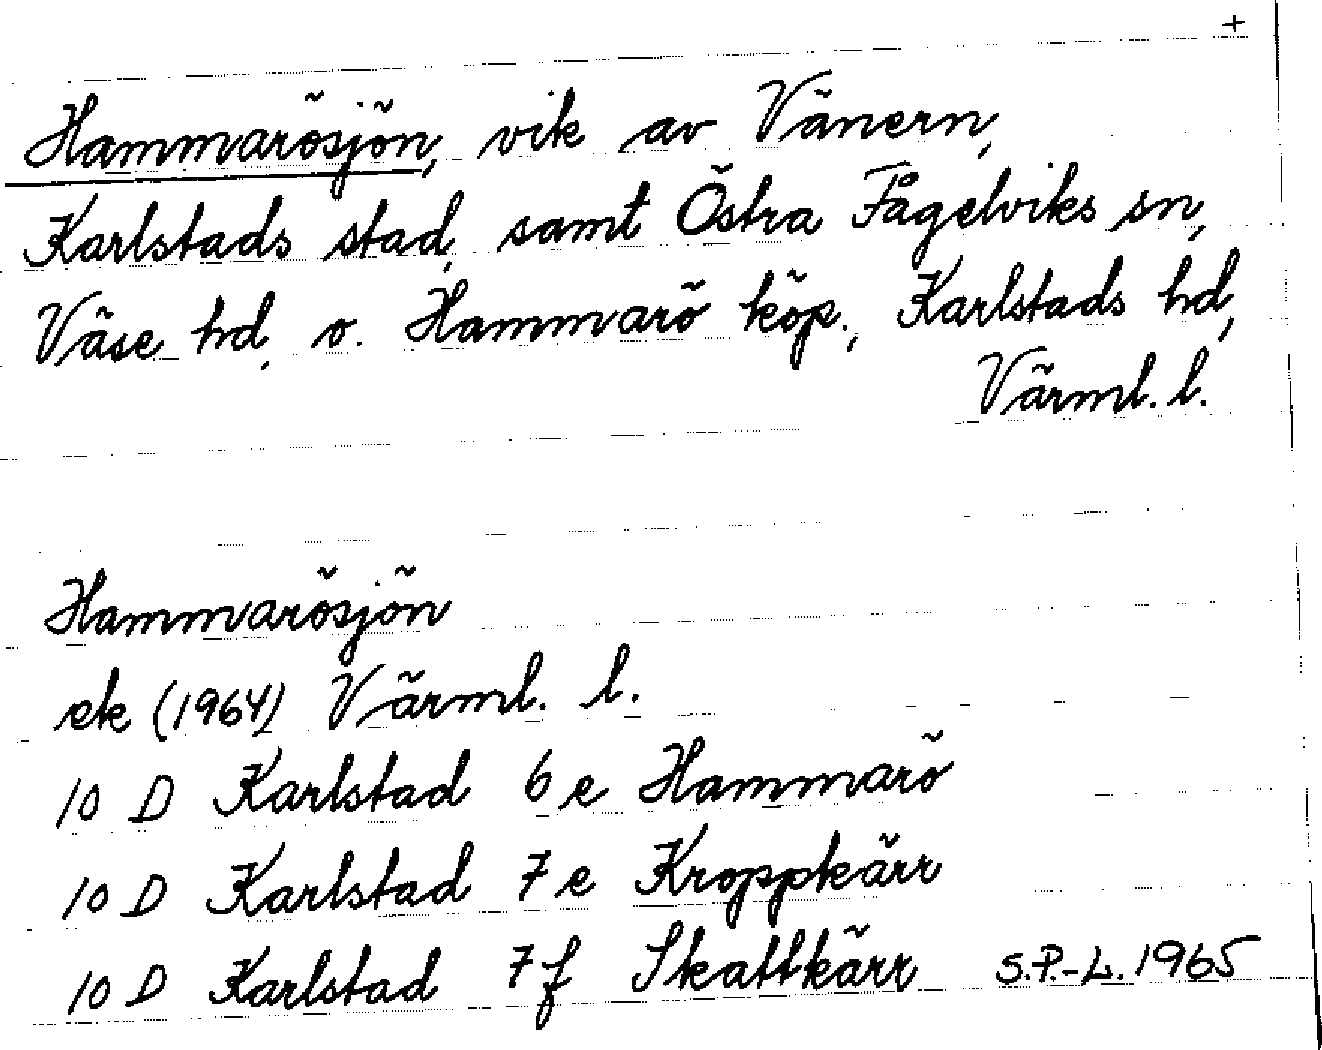 +
Hammarösjön, vik av Vänern,
Karlstads stad, samt Östra Fågelviks sn,
Väse hd, o. Hammarö köp., Karlstads hd,
Värml. l.
Hammarösjön
ek (1964) Värml. l.
10 D Karlstad 6 e Hammarö
10 D Karlstad 7 e Kroppkärr
10 D Karlstad 7 f Skattkärr S.P.-L. 1965